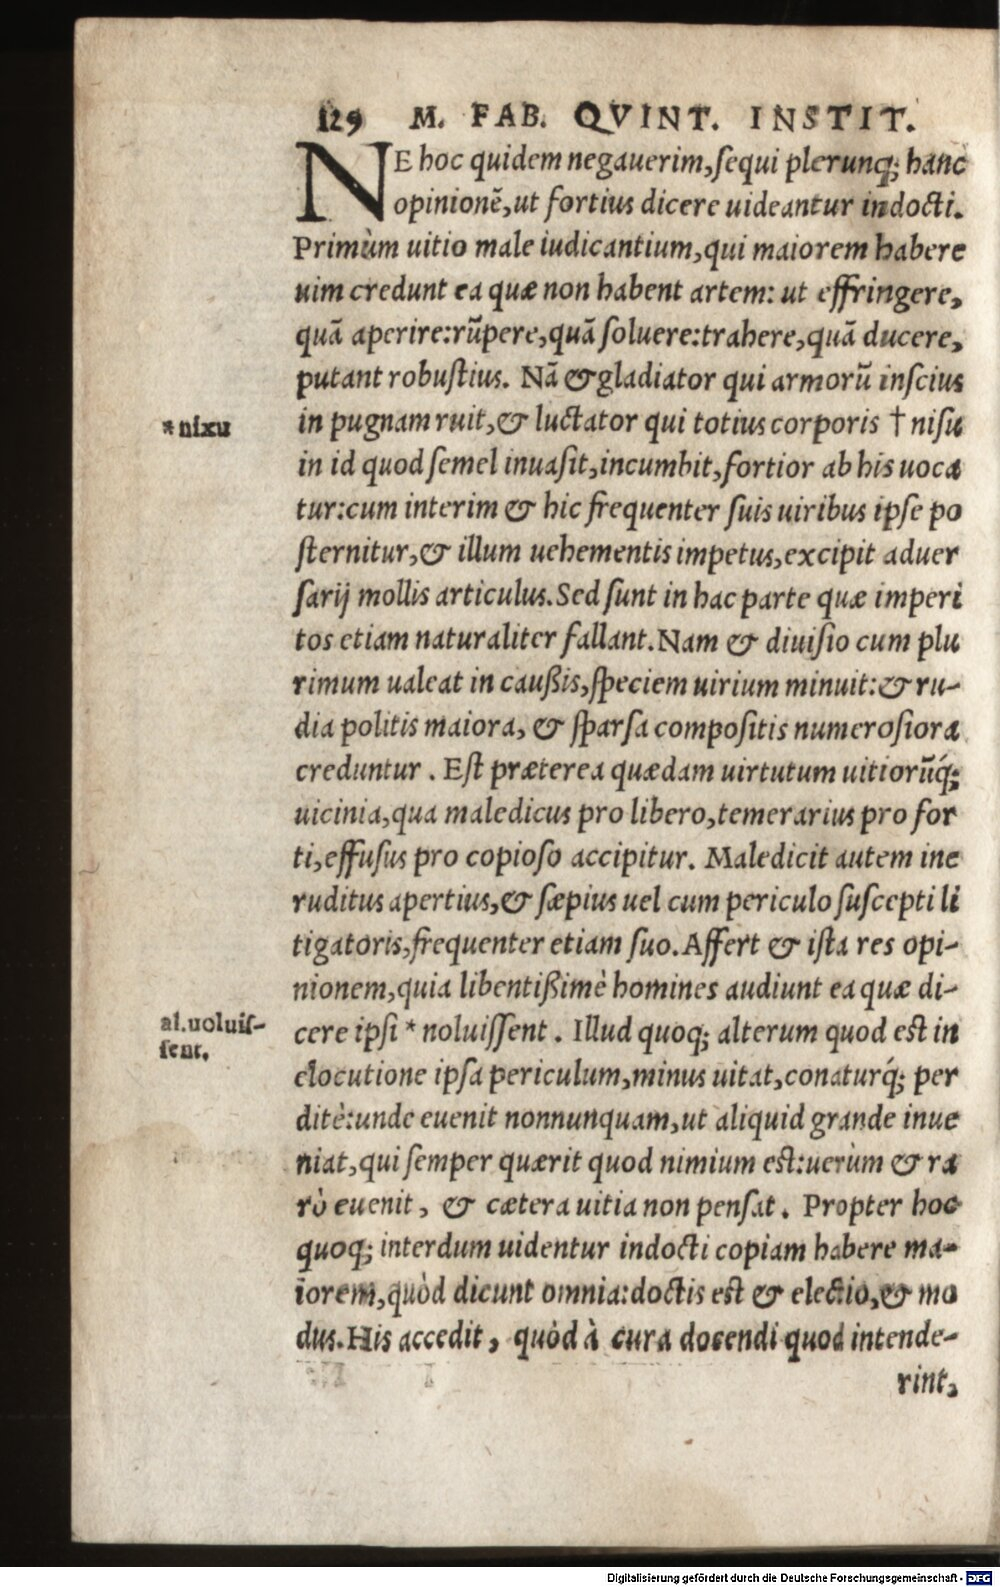 129 M. FAB. QVINT. INSTIT.
NE hoc quidem negauerim,sequi plerunq; hanc
opinionẽ,ut fortius dicere uideantur indocti.
Primùm uitio male iudicantium,qui maiorem habere
uim credunt ea quæ non habent artem: ut effringere,
quã aperire:rũpere,quã soluere:trahere,quã ducere,
putant robustius. Nã & gladiator qui armorũ inscius
in pugnam ruit,& luctator qui totius corporis † nisu
*nixu
in id quod semel inuasit,incumbit,fortior ab his uoca
tur:cum interim & hic frequenter suis uiribus ipse po
sternitur,& illum uehementis impetus,excipit aduer
sarij mollis articulus.Sed sunt in hac parte quæ imperi
tos etiam naturaliter fallant.Nam & diuisio cum plu
rimum ualeat in caußis,speciem uirium minuit:& ru-
dia politis maiora, & sparsa compositis numerosiora
creduntur . Est præterea quædam uirtutum uitiorũq́;
uicinia,qua maledicus pro libero,temerarius pro for
ti,effusus pro copioso accipitur. Maledicit autem ine
ruditus apertius,& sæpius uel cum periculo suscepti li
tigatoris,frequenter etiam suo.Affert & ista res opi-
nionem,quia libentißimè homines audiunt ea quæ di-
cere ipsi * noluissent . Illud quoq; alterum quod est in
al.uoluis-
sent.
elocutione ipsa periculum,minus uitat,conaturq́; per
ditè:unde euenit nonnunquam,ut aliquid grande inue
niat,qui semper quærit quod nimium est:uerùm & ra
rò euenit , & cætera uitia non pensat . Propter hoc
quoq; interdum uidentur indocti copiam habere ma-
iorem,quòd dicunt omnia:doctis est & electio,& mo
dus.His accedit , quòd à cura docendi quod intende-
rint,
Digitalisierung gefördert durch die Deutsche Forschungsgemeinschaft - DFG